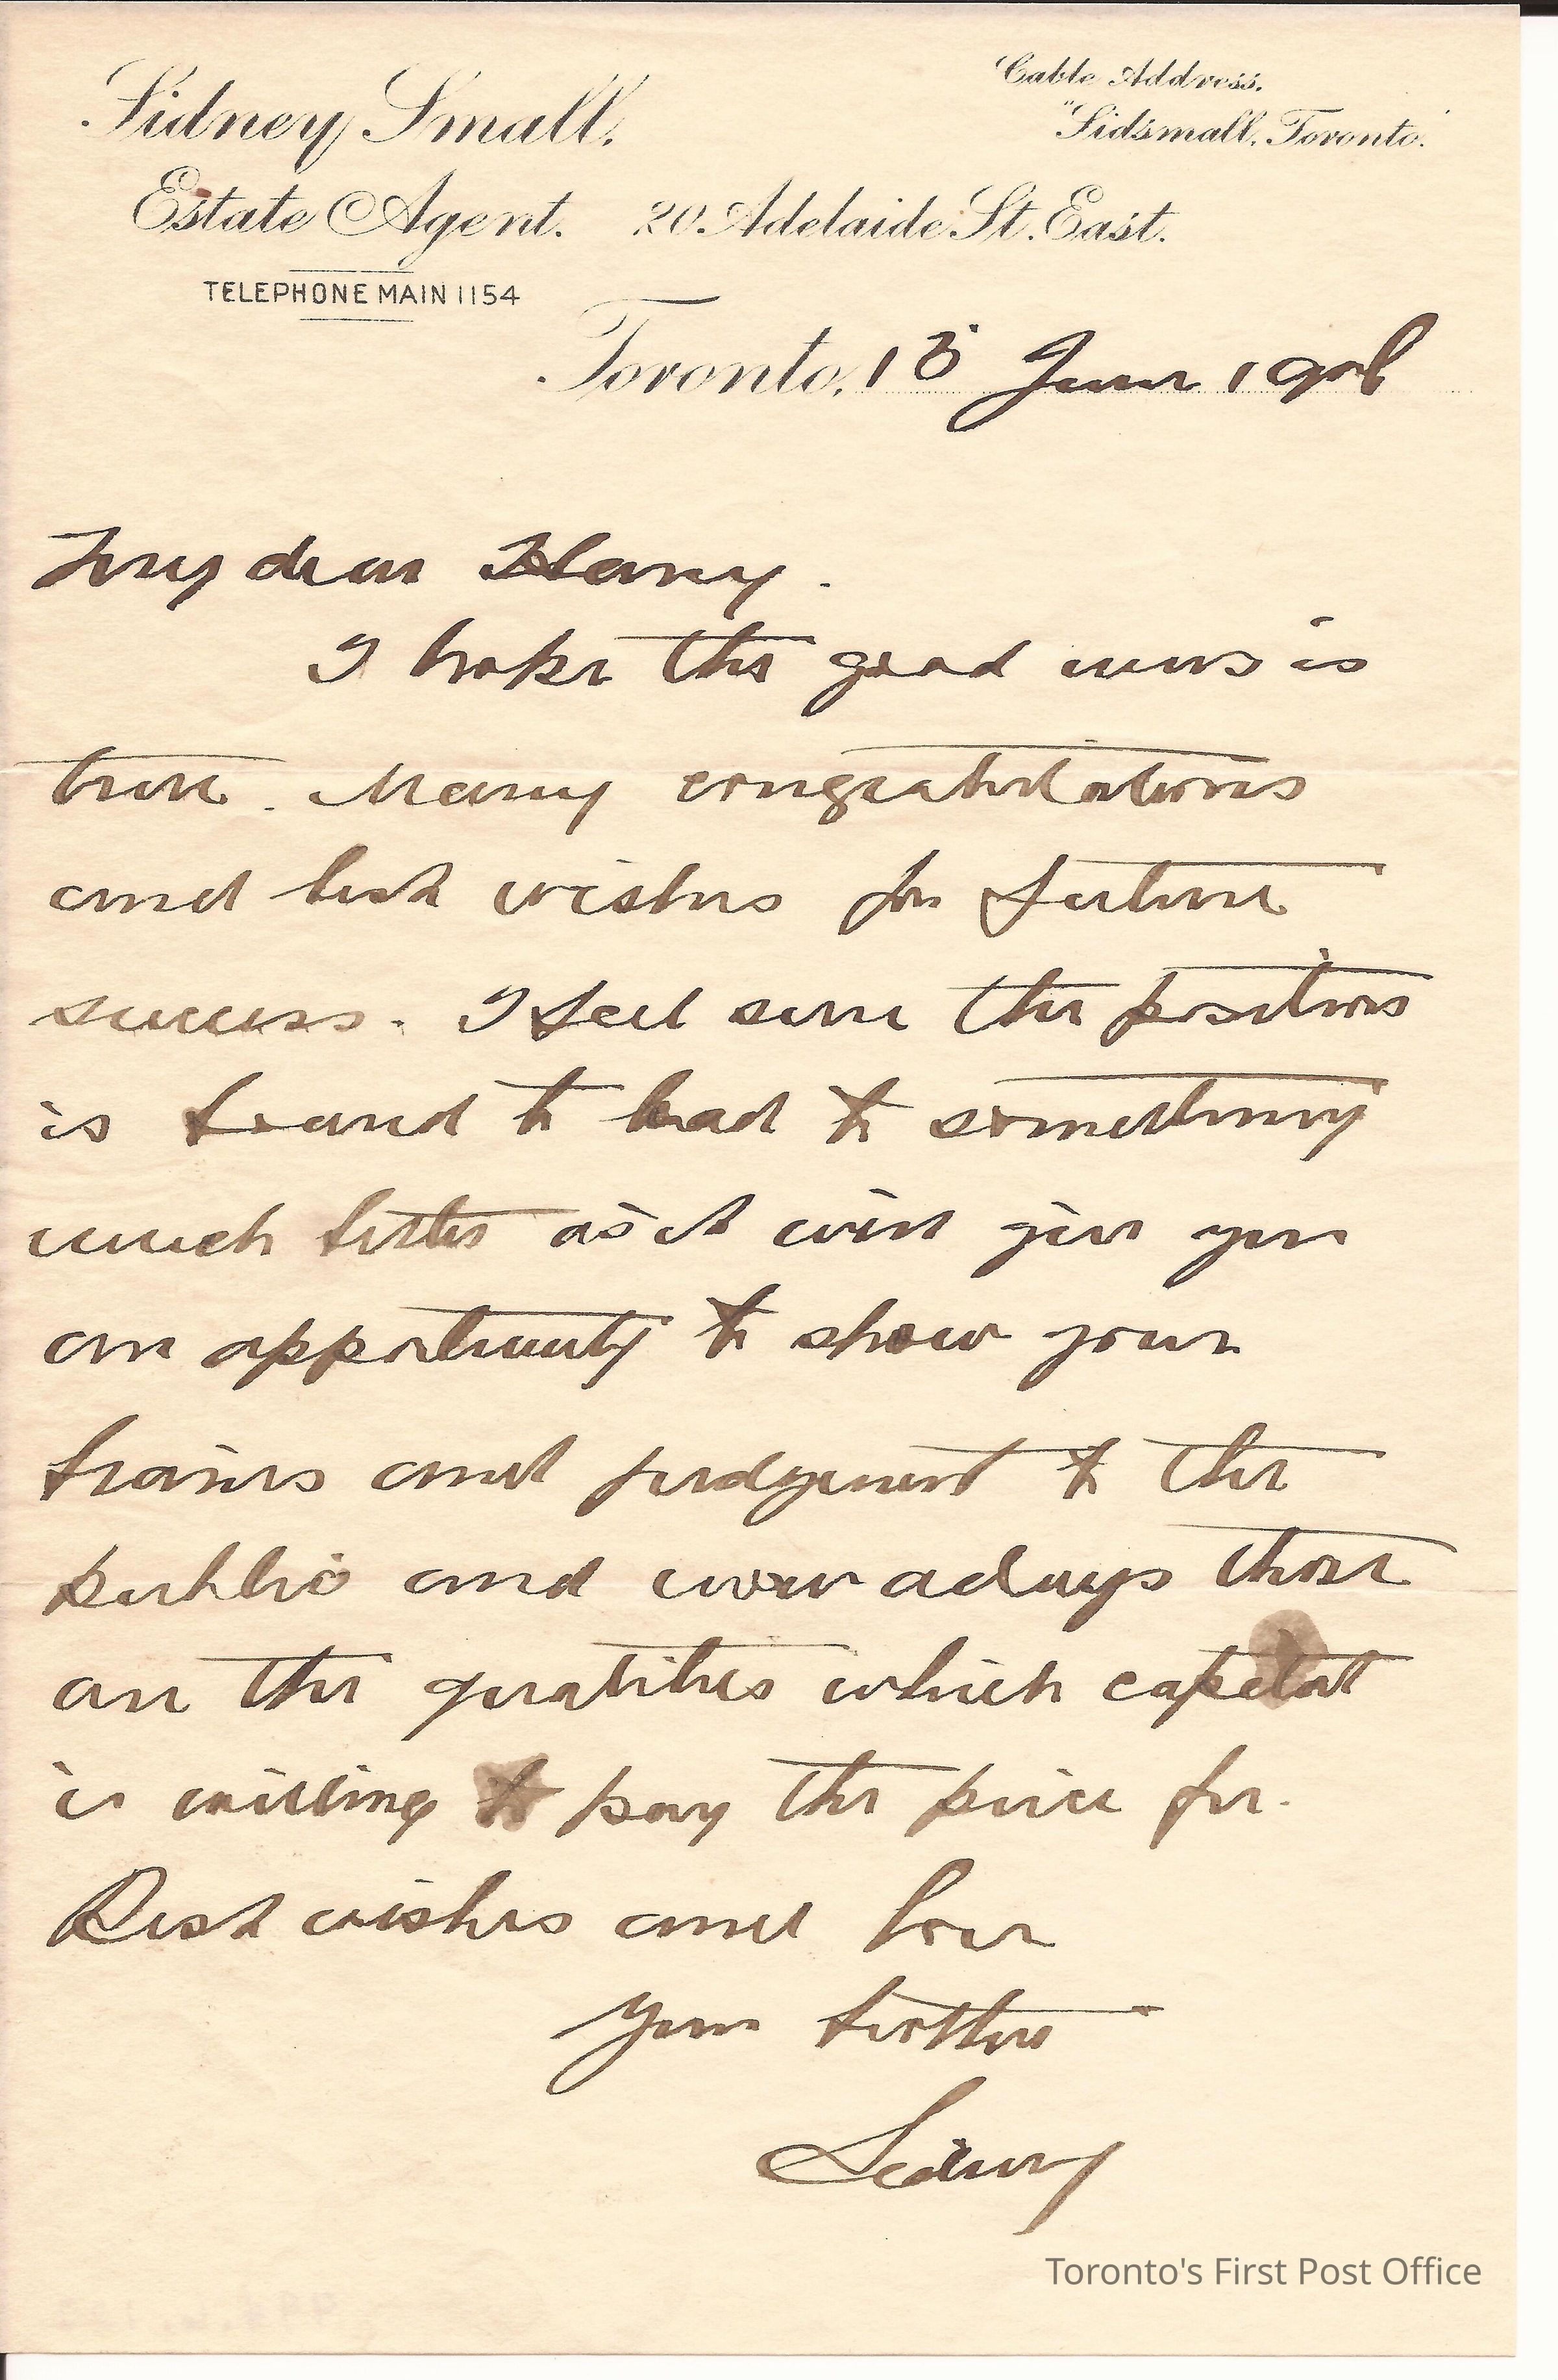 Sidney Small.
Cable Address.
"Sidsmall, Toronto."
Estate Agent. 20 Adelaide St. East.
TELEPHONE MAIN 1154
Toronto, 15 June 190
My dear Harry.
I hope the good news is
true. Many congratulations
and best wishes for future
success. I feel sure the position
is bound to lead to something
much better as it will give you
an opportunity to show your
brains and judgement to the
public and now adays those
are the qualities which capital
is willing to pay the price for.
Best wishes and love
Your brother
Sidney
Toronto's First Post Office